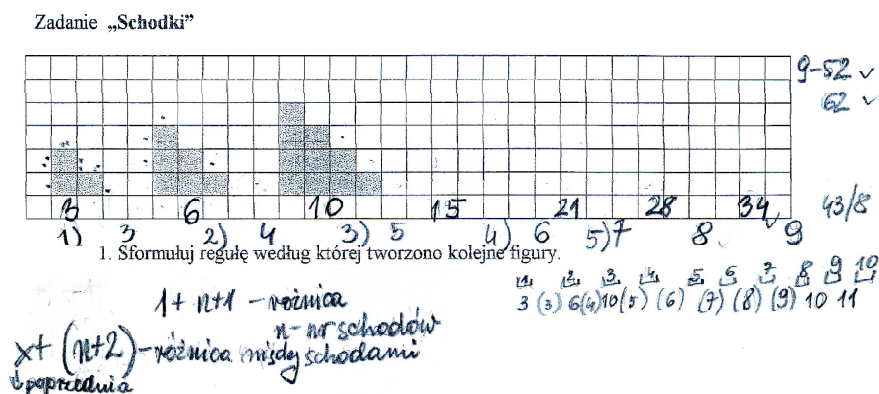 Zadanie „Schodki”
9-52 ✓
62 ✓
3 6 10 15 21 28 34 43/8
1) 3 2) 4 3) 5 4) 6 5) 7 8 9
1. Sformułuj regułę według której tworzono kolejne figury.
1 2 3 4 5 6 7 8 9 10
3 (3) 6 (4) 10 (5) (6) (7) (8) (9) 10 11
1 + n+1 – różnica
n – nr schodów
x + (n+2) – różnica między schodami
poprzednia